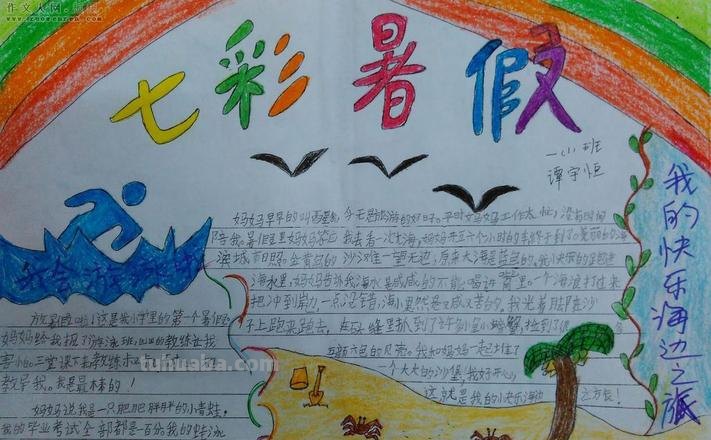 作文人网
七彩暑假
一小班
谭宇恒
我的快乐海边之旅
我会游泳啦
妈妈早早的叫醒我,今天是旅游的好日子。平时妈妈工作太忙,没有时间
陪我。暑假里妈妈答应我去看一次大海,妈妈开五六个小时的车终于到了美丽的海
滨城市日照。金黄色的沙滩一望无边,原来大海是蓝色的。
海水里,妈妈告诉我海水是咸咸的不能喝
把冲到岸边,一点没错,海水果然是又咸又苦的。我光着脚在沙
子上跑来跑去,在石缝里抓到了许多小螃蟹,捡到了
五颜六色的贝壳。我和妈妈一起堆了
一个大大的沙堡,我好开心
这就是我的快乐海边之旅!
放暑假啦!这是我小学里的第一个暑假。
妈妈给我报了游泳班,
害怕。三堂课下来教练
教学我。我是最棒的!
妈妈说我是一只肥肥胖胖的小青蛙,
我的毕业考试全部都是百分我的蛙泳
tuhuaba.com